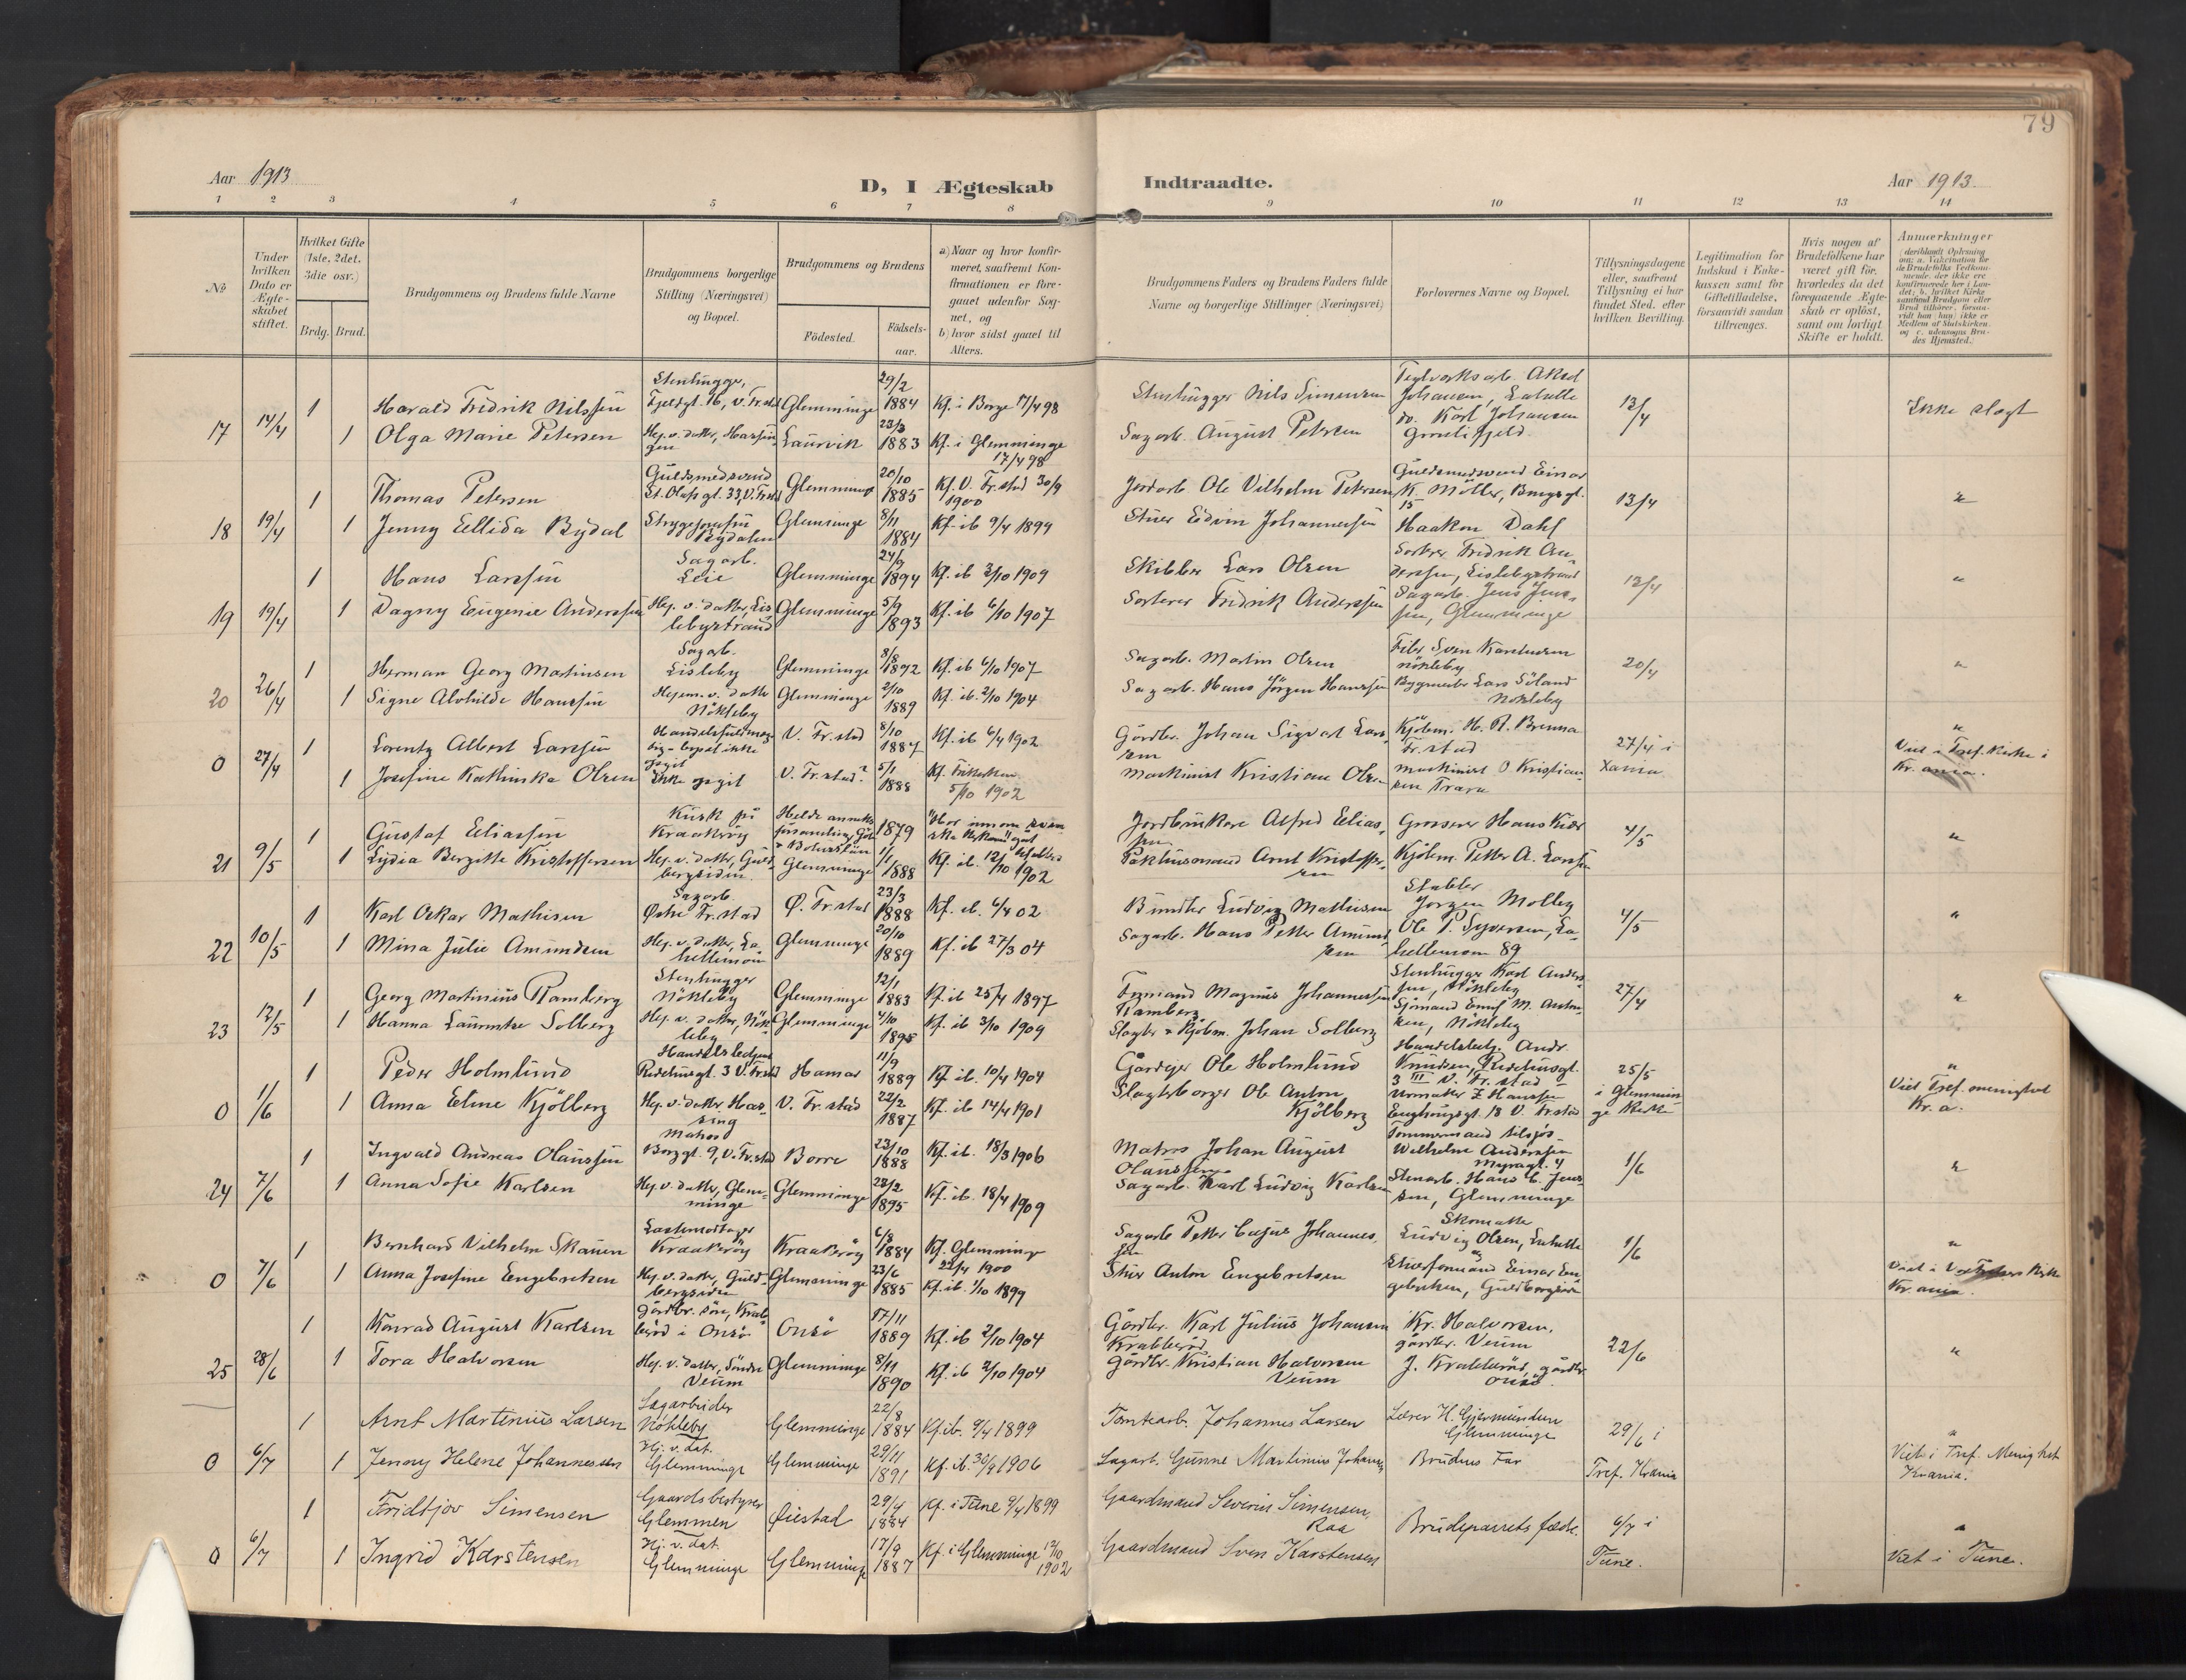 79
Aar 1913
D, I Ægteskab
Indtraadte.
Aar 1913.
1 2 3 4 5 6 7 8 9 10 11 12 13 14
No
Under hvilken Dato er Ægteskabet stiftet.
Hvilket Gifte (1ste, 2det, 3die osv.)
Brdg. Brud.
Brudgommens og Brudens fulde Navne
Brudgommens borgerlige Stilling (Næringsvei) og Bopæl.
Brudgommens og Brudens
Födested.
Födselsaar.
a) Naar og hvor konfirmeret, saafremt Konfirmationen er foregaaet udenfor Sognet, og
b) hvor sidst gaaet til Alters.
Brudgommens Faders og Brudens Faders fulde Navne og borgerlige Stillinger (Næringsvei)
Forlovernes Navne og Bopæl.
Tillysningsdagene eller, saafremt Tillysning ei har fundet Sted, efter hvilken Bevilling.
Legitimation for Indskud i Enkekassen samt for Giftetilladelse, forsaavidt saadan tiltrænges.
Hvis nogen af Brudefolkene har været gift før, hvorledes da det foregaaende Ægteskab er opløst, samt om lovligt Skifte er holdt.
Anmærkninger
17 14/4
1 Harald Fridrik Nilssen Stenhugger, Fjeldgt. 16, V. Fr.stad Glemminge 29/2 1884 Kf. i Borge 17/4 98 Stenhugger Nils Simensen 13/4 Ikke slægt
1 Olga Marie Petersen Hej. v. datter Laurvik 23/3 1883 Kf. i Glemminge 17/4 98 Sagarb. August Petersen Karl Johansen
18 19/4
1 Thomas Petersen Guldsmedsvend St. Olafs gt. 33, V. Fr.stad Glemminge 20/10 1885 Kf. V. Fr.stad 30/9 1900 Jordarb. Ole Vilhelm Petersen Guldsmedsvend Einar K. Möller, 15 13/4 "
1 Jenny Ellida Bydal Glemminge 8/11 1884 Kf. ib 9/4 1899 Stuer Edvin Johannessen Haakon Dahl
19 19/4
1 Hans Larssen Sagarb. Leie Glemminge 24/9 1894 Kf. ib 3/10 1909 Skibber Lars Olsen Sorterer Fridrik Anderssen, Lislebystrand 13/4 "
1 Dagny Eugenie Anderssen Hej. v. datter, Lislebystrand Glemminge 5/9 1893 Kf. ib 6/10 1907 Sorterer Fridrik Anderssen Sagarb. Jens Jenssen, Glemminge
20 26/4
1 Herman Georg Mathisen Sagarb. Lisleby Glemminge 8/8 1892 Kf. ib 6/10 1907 Sagarb. Martin Olsen Nökleby 20/4 "
1 Signe Alvhilde Hanssen Hejem. v. datter Nökleby Glemminge 2/10 1889 Kf. ib. 2/10 1904 Sagarb. Hans Jörgen Hanssen Bygmester Lars Söland Nökleby
0 27/4
1 Lorentz Albert Larssen V. Fr.stad 8/10 1887 Kf. ib 6/4 1902 Gårdbr. Johan Sigvart Larssen Kjöbm. H. A. Brenna Fr.stad 27/4 i Xania "
1 Josefine Kathinka Olsen Ikke opgit V. Fr.stad? 5/1 1888 Kf. 5/10 1902 Maskinist Kristian Olsen Maskinist O. Kristiansen Trara
21 9/5
1 Gustaf Eliassen Kusk på Kraakerøy 1879 Alfred Eliassen Grosserer Hans Kiær 4/5 "
1 Lydia Bergitte Kristoffersen Hej. v. datter, Guldbergsiden Glemminge 1/1 1888 Kf. ib. 12/10 1902 Pakhusmand Arnt Kristoffersen Kjöbm. Petter A. Larssen
22 10/5
1 Karl Oskar Mathisen Sagarb. Østre Fr.stad Ø. Fr.stad 23/3 1888 Kf. ib. 6/4 02 Ludvig Mathisen Jörgen Molleg 4/5 "
1 Mina Julie Amundsen Hej. v. datter, Lahellemoen Glemminge 20/10 1889 Kf. ib 27/3 04 Sagarb. Hans Petter Amundsen Ole P. Syversen, Lahellemoen 89
23 12/5
1 Georg Martinius Ramberg Stenhugger Nökleby Glemminge 12/1 1883 Kf. ib 25/4 1897 Magnus Johannessen Ramberg Stenhugger Karl Anderssen, Nökleby 27/4 "
1 Hanna Laurentse Solberg Hej. v. datter, Nökleby Glemminge 4/10 1895 Kf. ib 3/10 1909 Slagter & Kjöbm. Johan Solberg Sjömand Emil M. Antonsen, Nökleby
0 1/6
1 Peder Holmlund Handelsbetjent Ridehusgt. 3 V. Fr.stad Hamar 11/9 1889 Kf. ib. 10/4 1904 Gårdejer Ole Holmlund Handelsbetj. Andr. Knudsen, Ridehusgt. 3 III V. Fr.stad 25/5 i Glemminge Kirke "
1 Anna Eline Kjölberg Hej. v. datter V. Fr.stad 22/2 1887 Kf. ib 14/4 1901 Slagterborger Ole Anton Kjölberg Urmaker Z. Hanssen Enghaugsgt. 18 V. Fr.stad Viet Tref. menighet Kr.a.
24 7/6
1 Ingvald Andreas Olaussen Matros Borggt. 9, V. Fr.stad Borre 23/10 1888 Kf. ib. 18/3 1906 Matros Johan August Olaussen Tömmermand tilsjös Wilhelm Anderssen Myragt. 4 1/6 "
1 Anna Sofie Karlsen Hej. v. datter, Glemminge Glemminge 28/2 1895 Kf. ib. 18/4 1909 Sagarb. Karl Ludvig Karlsen Stenarb. Hans C. Jenssen, Glemminge
0 7/6
1 Bernhard Vilhelm Skauen Lastemodtager Kraakeröy Kraakeröy 6/8 1884 Kf. Glemminge 22/4 1900 Sagarb. Petter Johannessen Skomaker Ludvig Olsen, Lahelle 1/6 "
1 Anna Josefine Engebretsen Hej. v. datter, Guldbergsiden Glemminge 23/6 1885 Kf. ib. 1/10 1899 Stuer Anton Engebretsen Stuerformand Einar Engebretsen, Guldbergsiden
25 28/6
1 Konrad August Karlsen Gårdbr. sön, Krabberöd i Onsö Onsö 17/11 1889 Kf. ib 2/10 1904 Gårdbr. Karl Julius Johansen Krabberöd Kr. Halvorsen, gårdbr. Veum 22/6 "
1 Tora Halvorsen Hej. v. datter, Söndre Veum Glemminge 8/11 1890 Kf. ib 2/10 1904 Gårdbr. Kristian Halvorsen Veum J. Krabberöd, gårdbr. Onsö
0 6/7
1 Arnt Martinius Larsen Sagarbeider Nökleby Glemminge 22/8 1884 Kf. ib. 9/4 1899 Tomtearb. Johannes Larsen Lærer H. Gjermundsen Glemminge 29/6 i Tref. Krania "
1 Jenny Helene Johannessen Hj. v. dat. Glemminge Glemminge 29/11 1891 Kf. ib. 30/9 1906 Sagarb. Gunne Martinius Johannessen Brudens Far Viet i Tref. Menighet Krania.
0 6/7
1 Fridtjov Simensen Gaardsbestyrer Glemmen Øiestad 29/4 1884 Kf. i Tune 9/4 1899 Gaardmand Severin Simensen, Raa Brudeparrets fædre. 6/7 i Tune. "
1 Ingrid Karstensen Hj. v. dat. Glemminge Glemminge 17/9 1887 Kf. i Glemminge 12/10 1902 Gaardmand Sven Karstensen Viet i Tune.